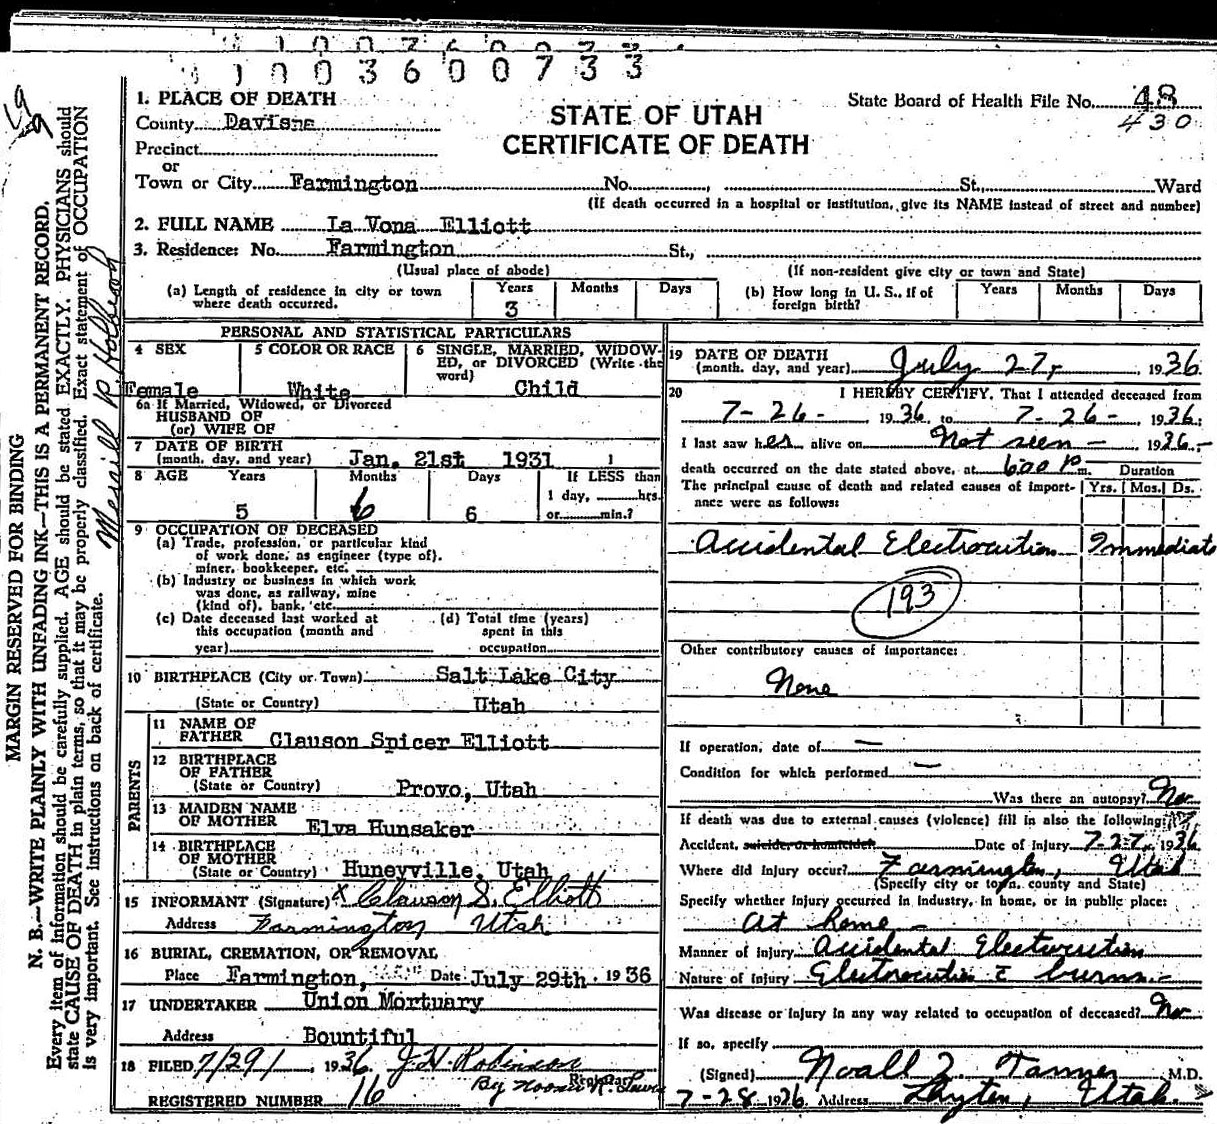 1003600733
1. PLACE OF DEATH
County Davis
Precinct
or
Town or City Farmington No. , St., Ward
(If death occurred in a hospital or institution, give its NAME instead of street and number)
STATE OF UTAH
CERTIFICATE OF DEATH
State Board of Health File No. 48
430
2. FULL NAME La Vona Elliott
3. Residence: No. Farmington St.,
(Usual place of abode) (If non-resident give city or town and State)
(a) Length of residence in city or town where death occurred. Years 3 Months Days
(b) How long in U. S., if of foreign birth? Years Months Days
PERSONAL AND STATISTICAL PARTICULARS
4 SEX Female
5 COLOR OR RACE White
6 SINGLE, MARRIED, WIDOWED, or DIVORCED (Write the word) Child
6a If Married, Widowed, or Divorced
HUSBAND OF
(or) WIFE OF
7 DATE OF BIRTH
(month, day, and year) Jan. 21st 1931
8 AGE Years 5 Months 6 Days 6 If LESS than
1 day, hrs.
or min.?
9 OCCUPATION OF DECEASED
(a) Trade, profession, or particular kind
of work done, as engineer (type of),
miner, bookkeeper, etc.
(b) Industry or business in which work
was done, as railway, mine
(kind of), bank, etc.
(c) Date deceased last worked at
this occupation (month and
year)
(d) Total time (years)
spent in this
occupation
10 BIRTHPLACE (City or Town) Salt Lake City
(State or Country) Utah
PARENTS
11 NAME OF
FATHER Clauson Spicer Elliott
12 BIRTHPLACE
OF FATHER
(State or Country) Provo, Utah
13 MAIDEN NAME
OF MOTHER Elva Hunsaker
14 BIRTHPLACE
OF MOTHER
(State or Country) Huneyville, Utah
15 INFORMANT (Signature) x Clauson S. Elliott
Address Farmington Utah
16 BURIAL, CREMATION, OR REMOVAL
Place Farmington, Date July 29th 1936
17 UNDERTAKER Union Mortuary
Address Bountiful
18 FILED 7/29/ 1936 J. H. Robinson
By Registrar
REGISTERED NUMBER 16
19 DATE OF DEATH
(month, day, and year) July 27, 1936
20 I HEREBY CERTIFY, That I attended deceased from
7-26- 1936 to 7-26- 1936
I last saw her alive on Not seen - 1936 -
death occurred on the date stated above, at 6:00 Pm. Duration
The principal cause of death and related causes of importance were as follows: Yrs. Mos. Ds.
Accidental Electrocution Immediate
193
Other contributory causes of importance:
None
If operation, date of —
Condition for which performed —
Was there an autopsy? No
If death was due to external causes (violence) fill in also the following:
Accident, suicide, or homicide Date of Injury 7-27, 1936
Where did injury occur? Farmington, Utah
(Specify city or town, county and State)
Specify whether injury occurred in industry, in home, or in public place:
At home -
Manner of injury Accidental Electrocution
Nature of Injury Electrocution & burns -
Was disease or injury in any way related to occupation of deceased? No
If so, specify
(Signed) Noall Z. Tanner M.D.
7-28 1936 Address Layton, Utah.
MARGIN RESERVED FOR BINDING
N. B.—WRITE PLAINLY WITH UNFADING INK—THIS IS A PERMANENT RECORD.
Every item of information should be carefully supplied. AGE should be stated EXACTLY. PHYSICIANS should
state CAUSE OF DEATH in plain terms, so that it may be properly classified. Exact statement of OCCUPATION
is very important. See instructions on back of certificate.